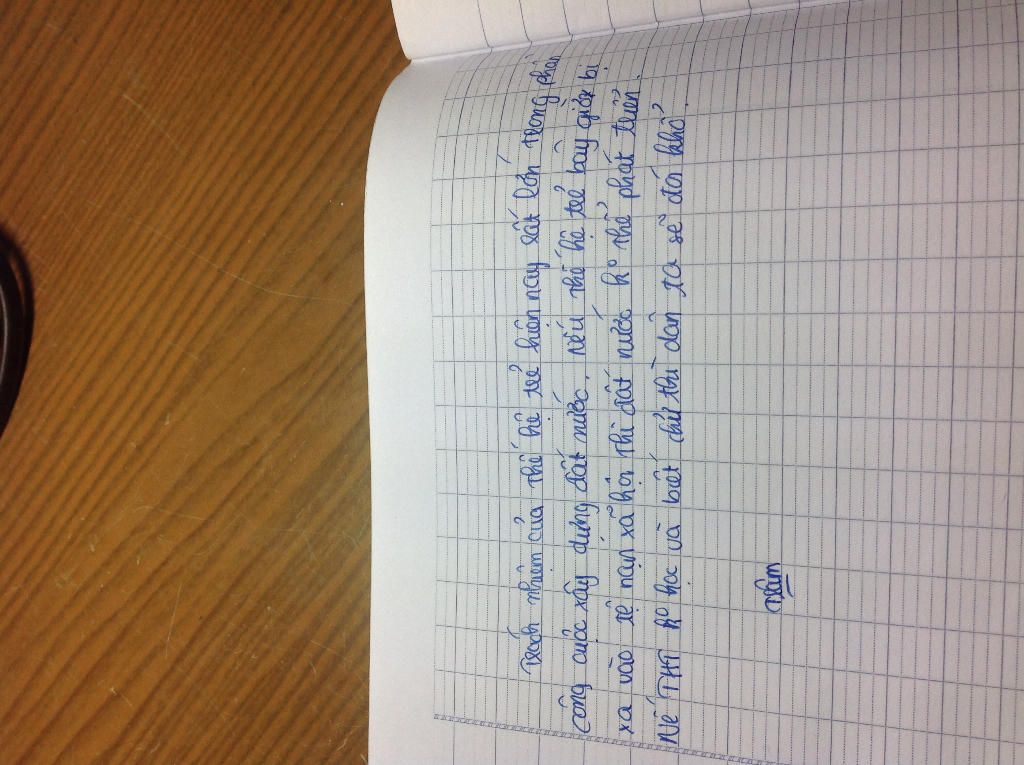 Trách nhiệm của thế hệ trẻ hiện nay rất lớn trong
công cuộc xây dựng đất nước. nếu thế hệ trẻ bây giờ bị
xa vào tệ nạn xã hội thì đất nước ko thể phát triển.
Nế THT ko học và biết chữ thì dân ta sẽ đói khổ.